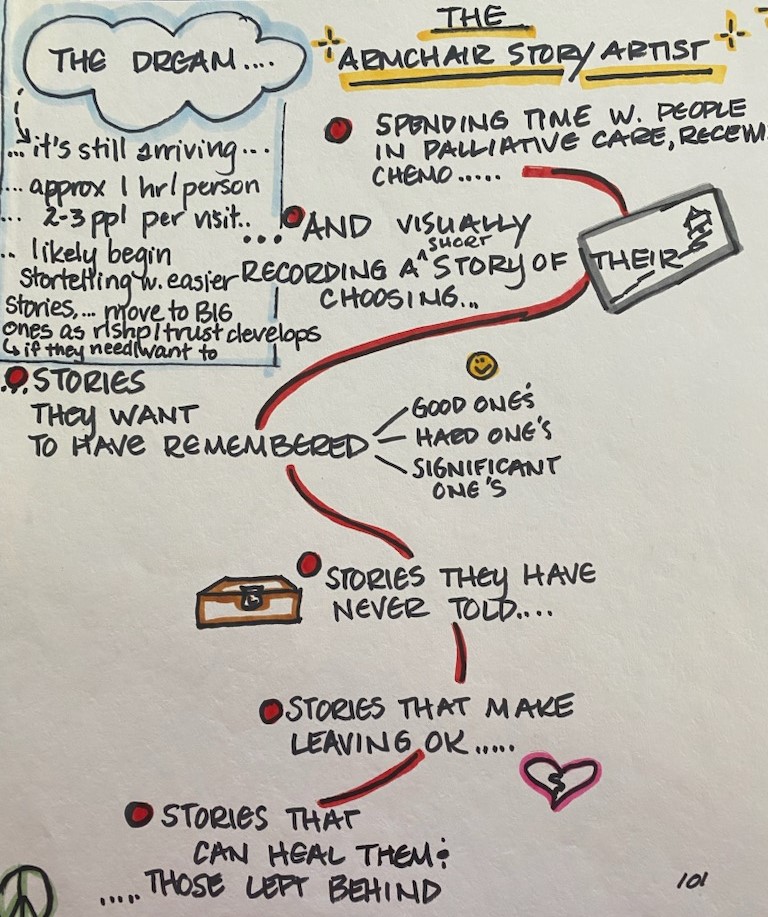 THE DREAM....
...it's still arriving...
... approx 1 hr/person
... 2-3 ppl per visit..
.. likely begin
Storytelling w. easier
stories,... move to BIG
ones as rlshp/trust develops
↳ if they need/want to
THE
ARMCHAIR STORY ARTIST
SPENDING TIME W. PEOPLE
IN PALLIATIVE CARE, RECEIVI
CHEMO.....
... AND VISUALLY
RECORDING A SHORT STORY OF THEIR
CHOOSING...
... STORIES
THEY WANT
TO HAVE REMEMBERED
GOOD ONE'S
HARD ONE'S
SIGNIFICANT
ONE'S
STORIES THEY HAVE
NEVER TOLD....
STORIES THAT MAKE
LEAVING OK.....
STORIES THAT
CAN HEAL THEM &
..... THOSE LEFT BEHIND
101